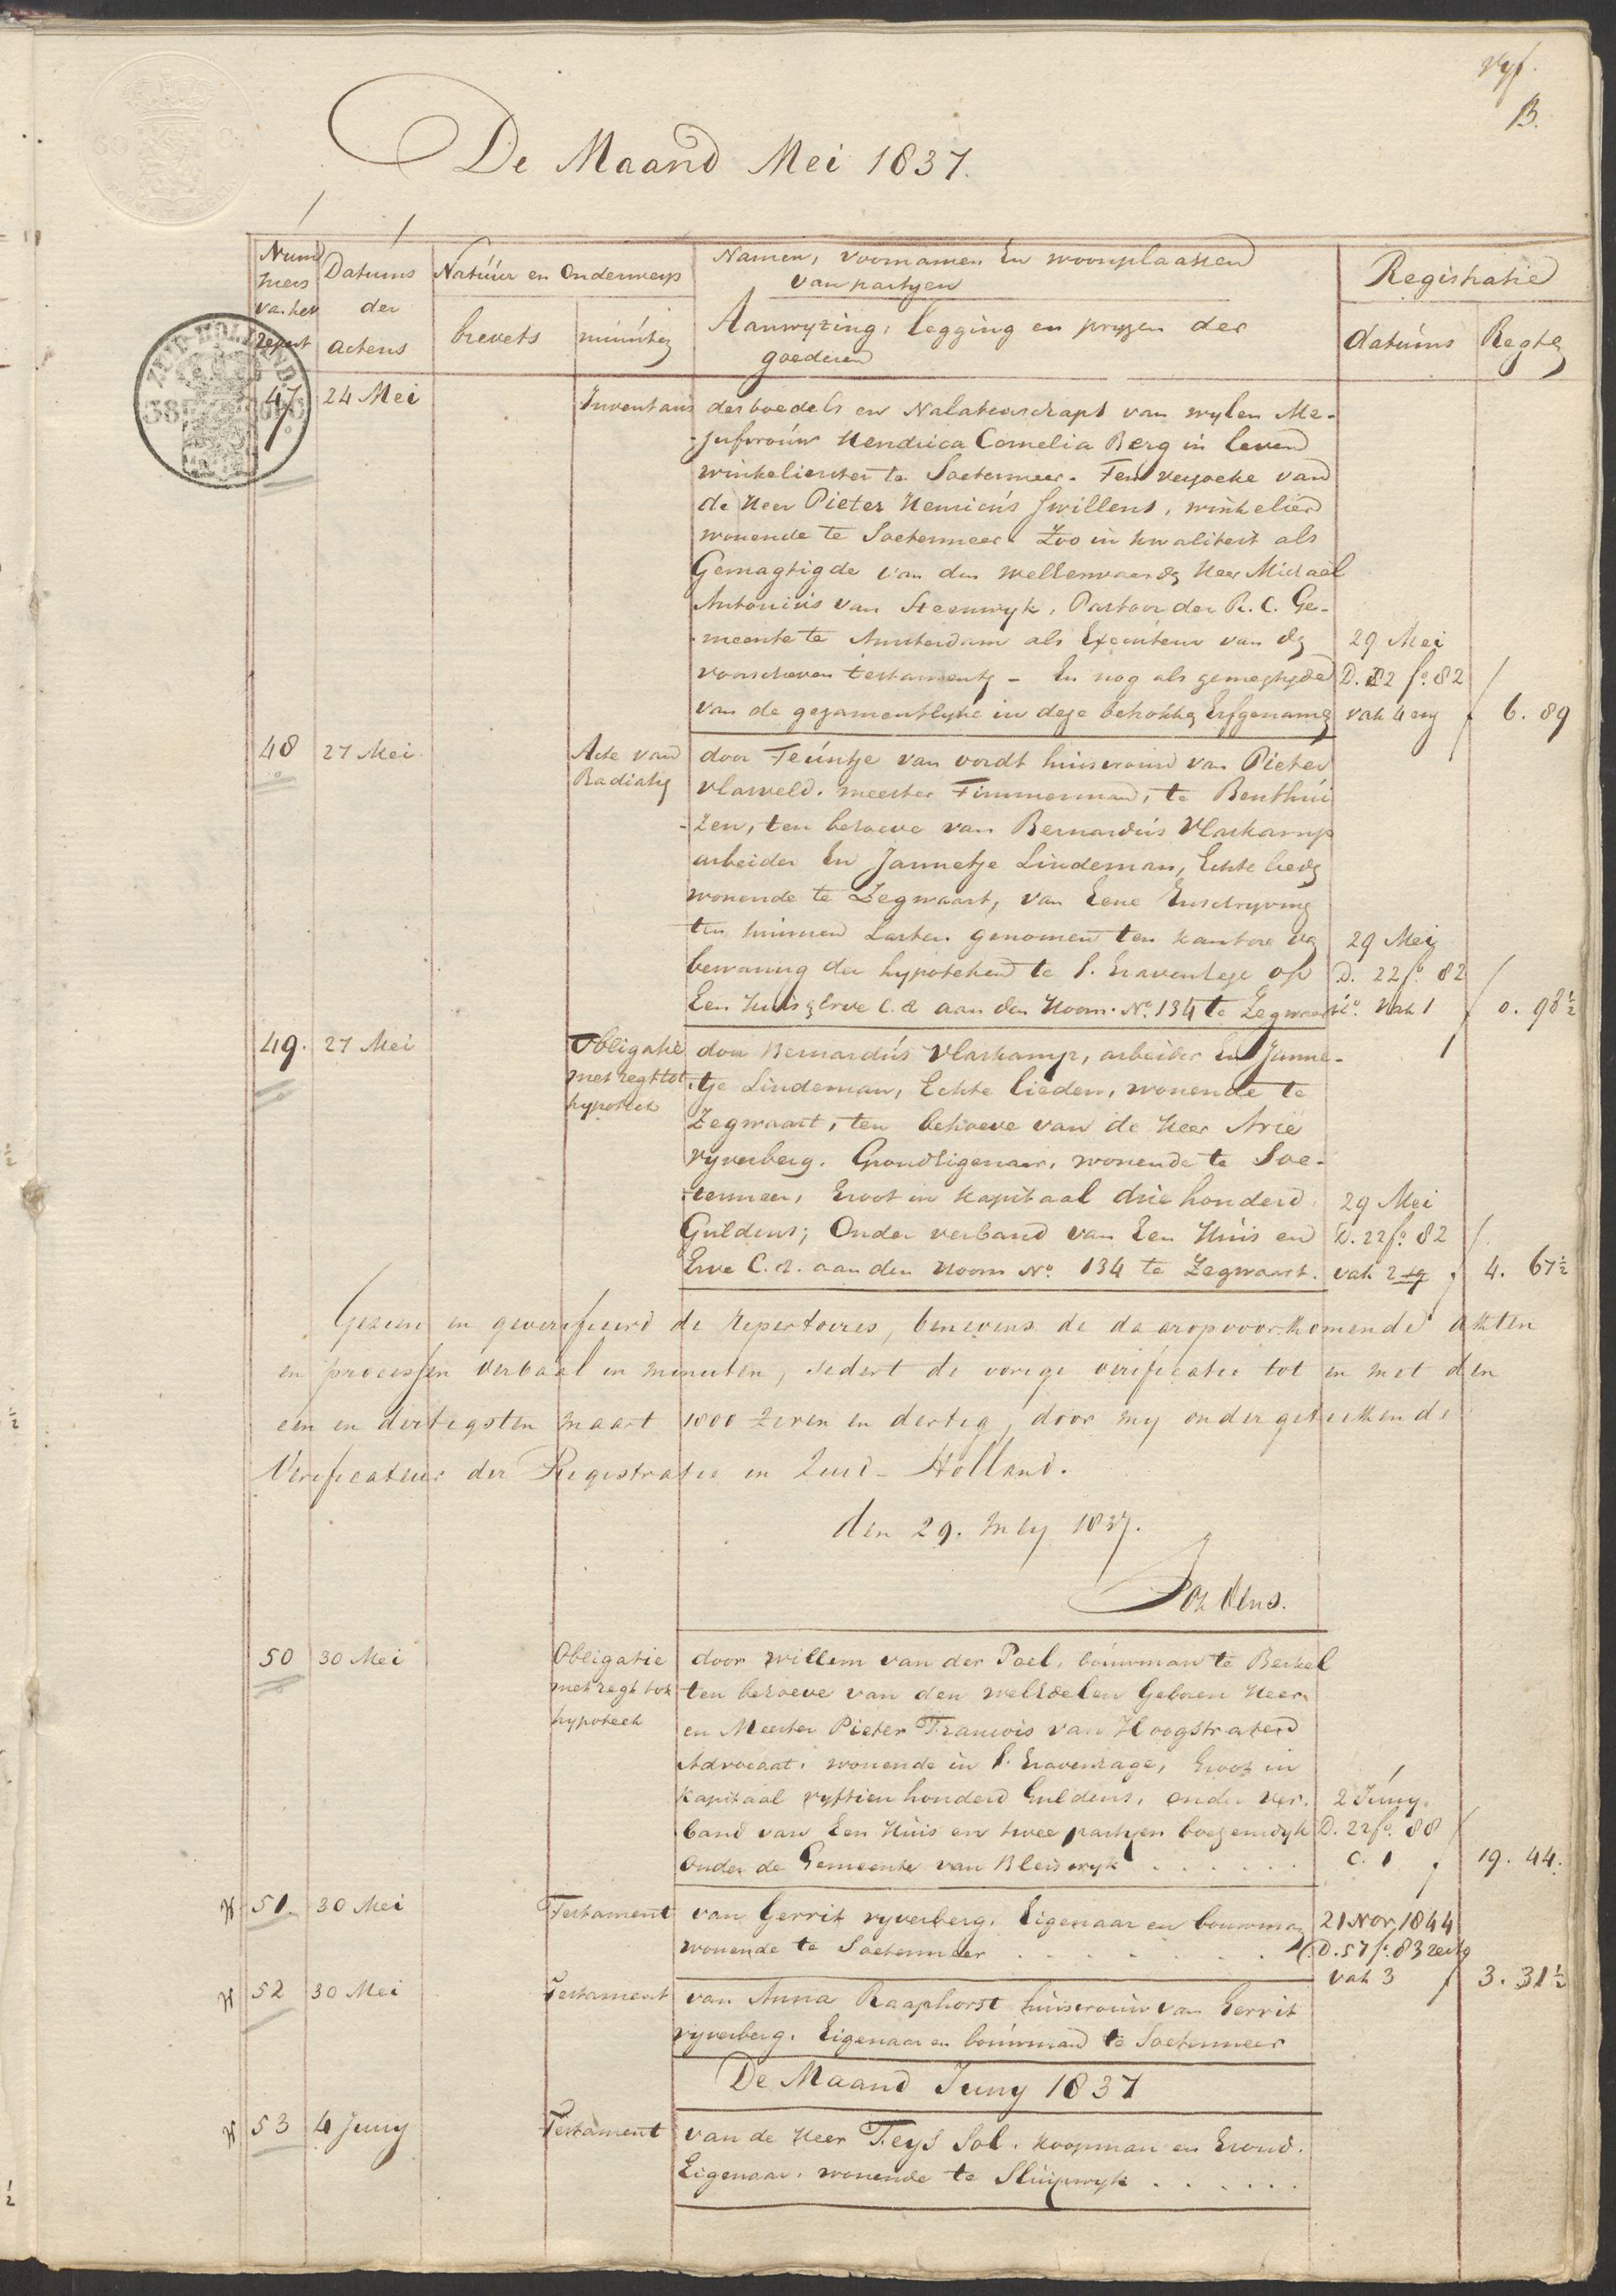 vyf.
B.
De Maand Mei 1837.
Num
mers
van het
repert
Datums
der
actens
Natuur en Onderwerp
brevets
minuten
Namen, voornamen En woonplaatsen
van partyen
Aanwyzing, legging en pryzen der
goederen
Registratie
datums
Regten
47
24 Mei
Inventaris
des boedels en Nalatenschaps van wylen Me-
-jufvrouw Hendrica Cornelia Berg in leven
winkelierster te Soetermeer. Ten verzoeke van
de Heer Pieter Henricus Swillens, winkelier
wonende te Soetermeer. Zoo in kwaliteit als
Gemagtigde van den welEerwaarden Heer Michael
Antonius van Steenwyk, Pastoor der R. C. Ge-
-meente te Amsterdam als Executeur van de
voorschreven testamenten - En nog als gemagtigde
van de gezamentlyke in deze betrokken Erfgenamen
29 Mei
D. 22 fo. 82
vak 4 env
6. 89
48
27 Mei
Acte van
Radiatie
door Teuntje van oordt huisvrouw van Pieter
Vlasveld. meester Timmerman, te Benthui
-zen, ten behoeve van Bernardus Vlaskamp
arbeider En Jannetje Lindeman, Echte lieden
wonende te Zegwaart, van Eene Inschryving
ten hunnen Lasten genomen ten kantore van
bewaring der hypotheken te s. Gravenhage op
Een Huis & Erve C. a aan den Hoorn No. 134 te Zegwaart
29 Mei
D. 22 fo. 82
ro. Vak 1
0. 98½
49.
27 Mei
Obligatie
met regt tot
hypotheek
door Bernardus Vlaskamp, arbeider En Janne-
-tje Lindeman, Echte lieden, wonende te
Zegwaart, ten behoeve van de Heer Arie
Ryverberg. GrondEigenaar, wonende te Soe-
-termeer, Groot in kapitaal drie honderd
Guldens; Onder verband van Een Huis en
Erve C. a. aan den Hoorn No. 134 te Zegwaart.
29 Mei
D. 22 fo. 82
vak 2
4. 67½
Gezien en geverifieerd de Repertoires, benevens de daaropvoorkomende akten
en processen verbaal in minuten, sedert de vorige verificatie tot en met den
een en dertigsten maart 1800 zeven en dertig, door my ondergeteekende
Verificateur der Registratie in Zuid-Holland.
den 29. Mey 1837.
50
30 Mei
Obligatie
met regt tot
hypoteek
door Willem van der Poel, bouwman te Berkel
ten behoeve van den welEdelen Geboren Heer
en Meester Pieter Francois van Hoogstraten
Advocaat, wonende in s. Gravenhage, Groot in
kapitaal vyftien honderd Guldens, onder ver-
band van Een Huis en twee partyen boezemdyk
Onder de Gemeente van Bleiswyk . . . . . .
2 Juny.
D. 22 fo. 88
C. 1
19. 44.
51.
30 Mei
Testament
van Gerrit ryverberg, Eigenaar en bouwman
wonende te Soetermeer . . . . . . .
21 Nov 1844
D. 57 fo. 83 recto
vak 3
3. 31½
52
30 Mei
Testament
van Anna Raaphorst huisvrouw van Gerrit
ryverberg. Eigenaar en bouwman te Soetermeer
De Maand Juny 1837
53
4 Juny
Testament
van de Heer Teys Sol. koopman en Grond-
Eigenaar, wonende te Sluipwyk . . . . . .